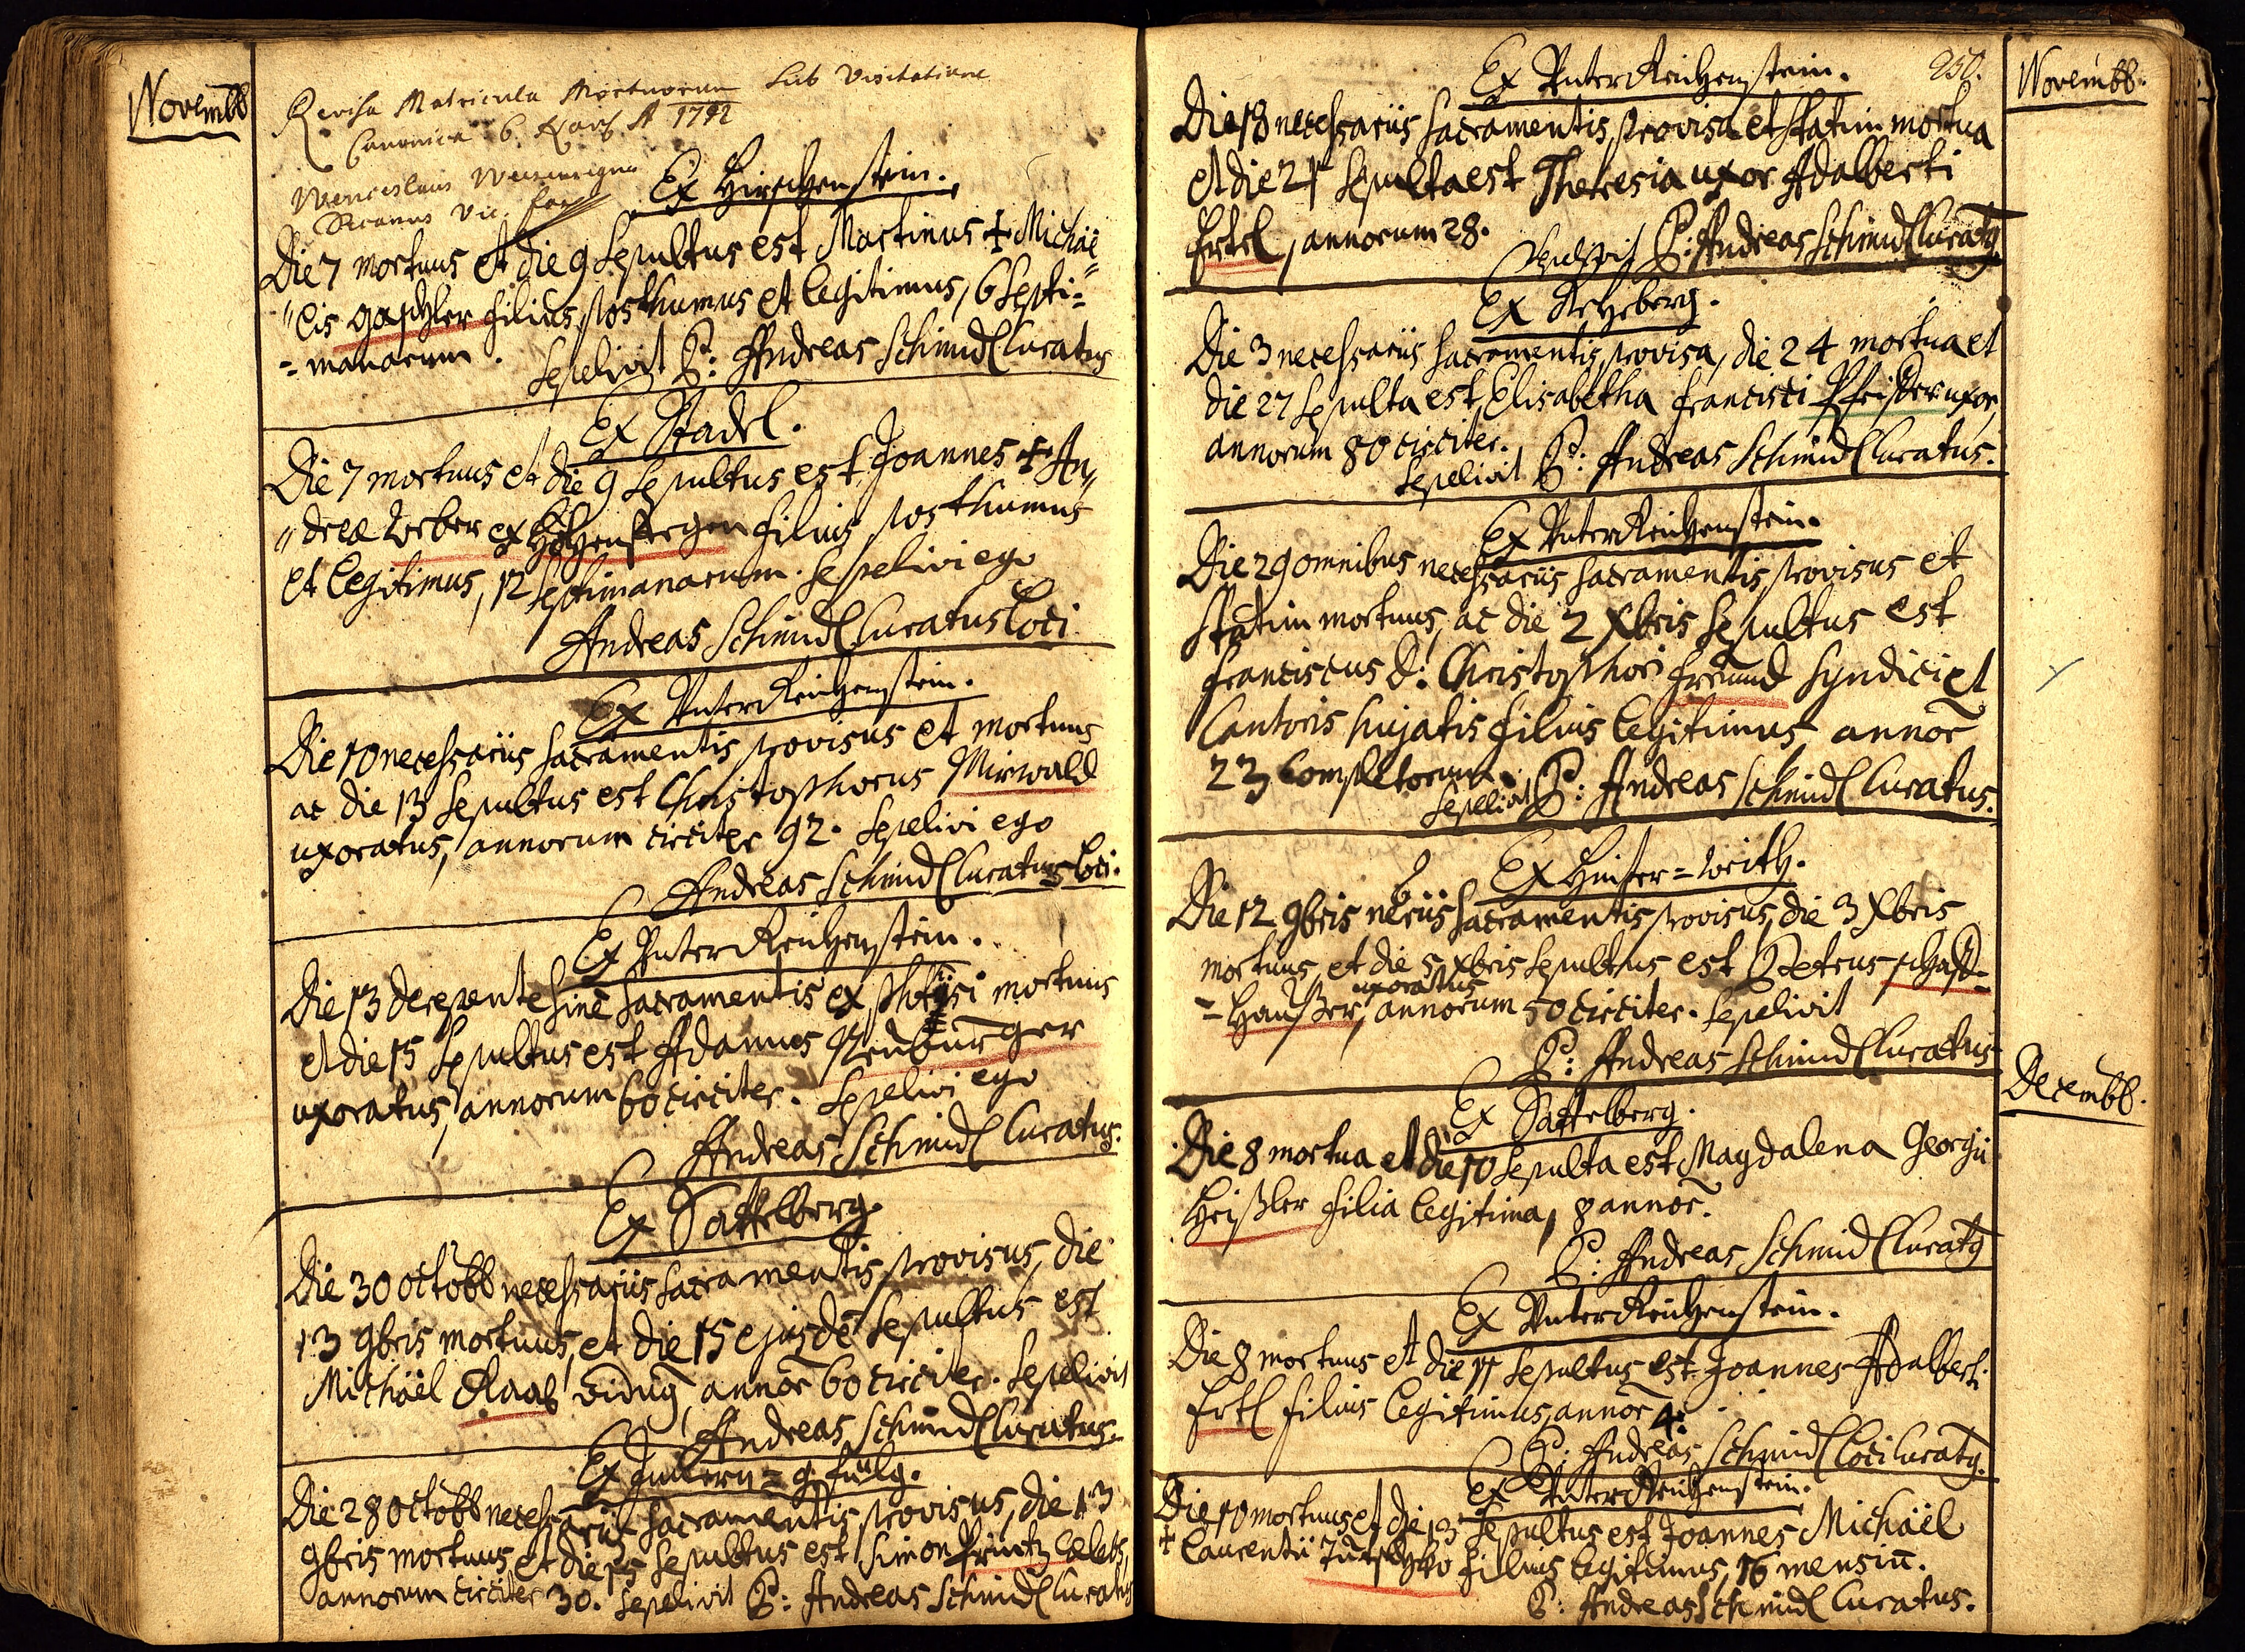 Novembb
Revisa Matricula Mortuorum sub Visitatione
Canonica 6. A 1742
Wenceslaus
Decanus Vic. For
Ex Hirschenstein.
Die 7 mortuus et die 9 sepultus est Martinus + Michaë
"lis filius posthumus et legitimus, 6 septi=
=manarum. sepelivit P: Andreas Schmidl Curatus
Ex Stadl.
Die 7 mortuus et die 9 sepultus est Joannes + An"
"dreæ Weber ex Hohenstegen filius posthumus
et legitimus, 12 septimanarum. sepelivi ego
Andreas Schmidl Curatus loci
Ex Unter Reichenstein.
Die 10 necessariis sacramentis provisus et mortuus
ac die 13 sepultus est Christophorus Mirwald
uxoratus, annorum circiter 92. sepelivi ego
Andreas Schmidl Curatus loci.
Ex Unter Reichenstein.
Die 13 derepente sine sacramentis ex phtysi mortuus
et die 15 sepultus est Adamus Neuburger
uxoratus, annorum 60 circiter. sepelivi ego
Andreas Schmidl Curatus.
Ex Sattelberg.
Die 30 octobb necessariis sacramentis provisus, die
13 9bris mortuus, et die 15 ejusdē sepultus est
Michäel Raab vidug, annor 60 circiter. sepelivit
Andreas Schmidl Curatus.
Ex Innern=gfülg.
Die 28 octobb necessariis sacramentis provisus, die 13
9bris mortuus et die 15 sepultus est Simon cælebs,
annorum circiter 30. sepelivit P: Andreas Schmidl Curatus
250.
Novembb.
Ex Unter Reichenstein.
Die 18 necessariis sacramentis provisa et statim mortua
et die 21 sepulta est Theresia uxor Adalberti
Ertl, annorum 28.
Sepelivit P: Andreas Schmidl Curatg
Ex Rehberg.
Die 3 necessariis sacramentis provisa, die 24 mortua et
die 27 sepulta est Elisabetha Francisci Pfeisser uxor,
annorum 80 circiter.
sepelivit P: Andreas Schmidl Curatus.
Ex Unter Reichenstein.
Die 29 omnibus necessariis sacramentis provisus et
statim mortuus, ac die 2 Xbris sepultus est
Franciscus D: Christophori Freund Syndici et
Cantoris hujatis filius legitimus annor
23 completorum.
sepelivit P: Andreas Schmidl Curatus.
Ex Hinter=weith.
Die 12 9bris neriis sacramentis provisus, die 3 Xbris
mortuus, et die 5 Xbris sepultus est Petrus
uxoratus
=Hausser, annorum 50 circiter. sepelivit
P: Andreas Schmidl Curatus
Decembb.
Ex Sattelberg.
Die 8 mortua et die 10 sepulta est Magdalena Georgii
Heißler filia legitima, 8 annor.
P: Andreas Schmidl Curatg
Ex Unter Reichenstein.
Die 8 mortuus et die 11 sepultus est Joannes Adalberti
Ertl filius legitimus, annor 4.
P: Andreas Schmidl loci Curatg.
Ex Unter Reichenstein.
Die 10 mortuus et die 13 sepultus est Joannes Michäel
+ Laurentii filius legitimus, 16 mensiū.
P: Andreas Schmidl Curatus.